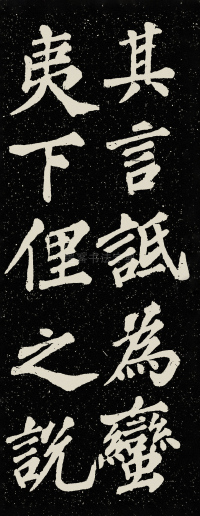 其言詆為蠻
夷下俚之說